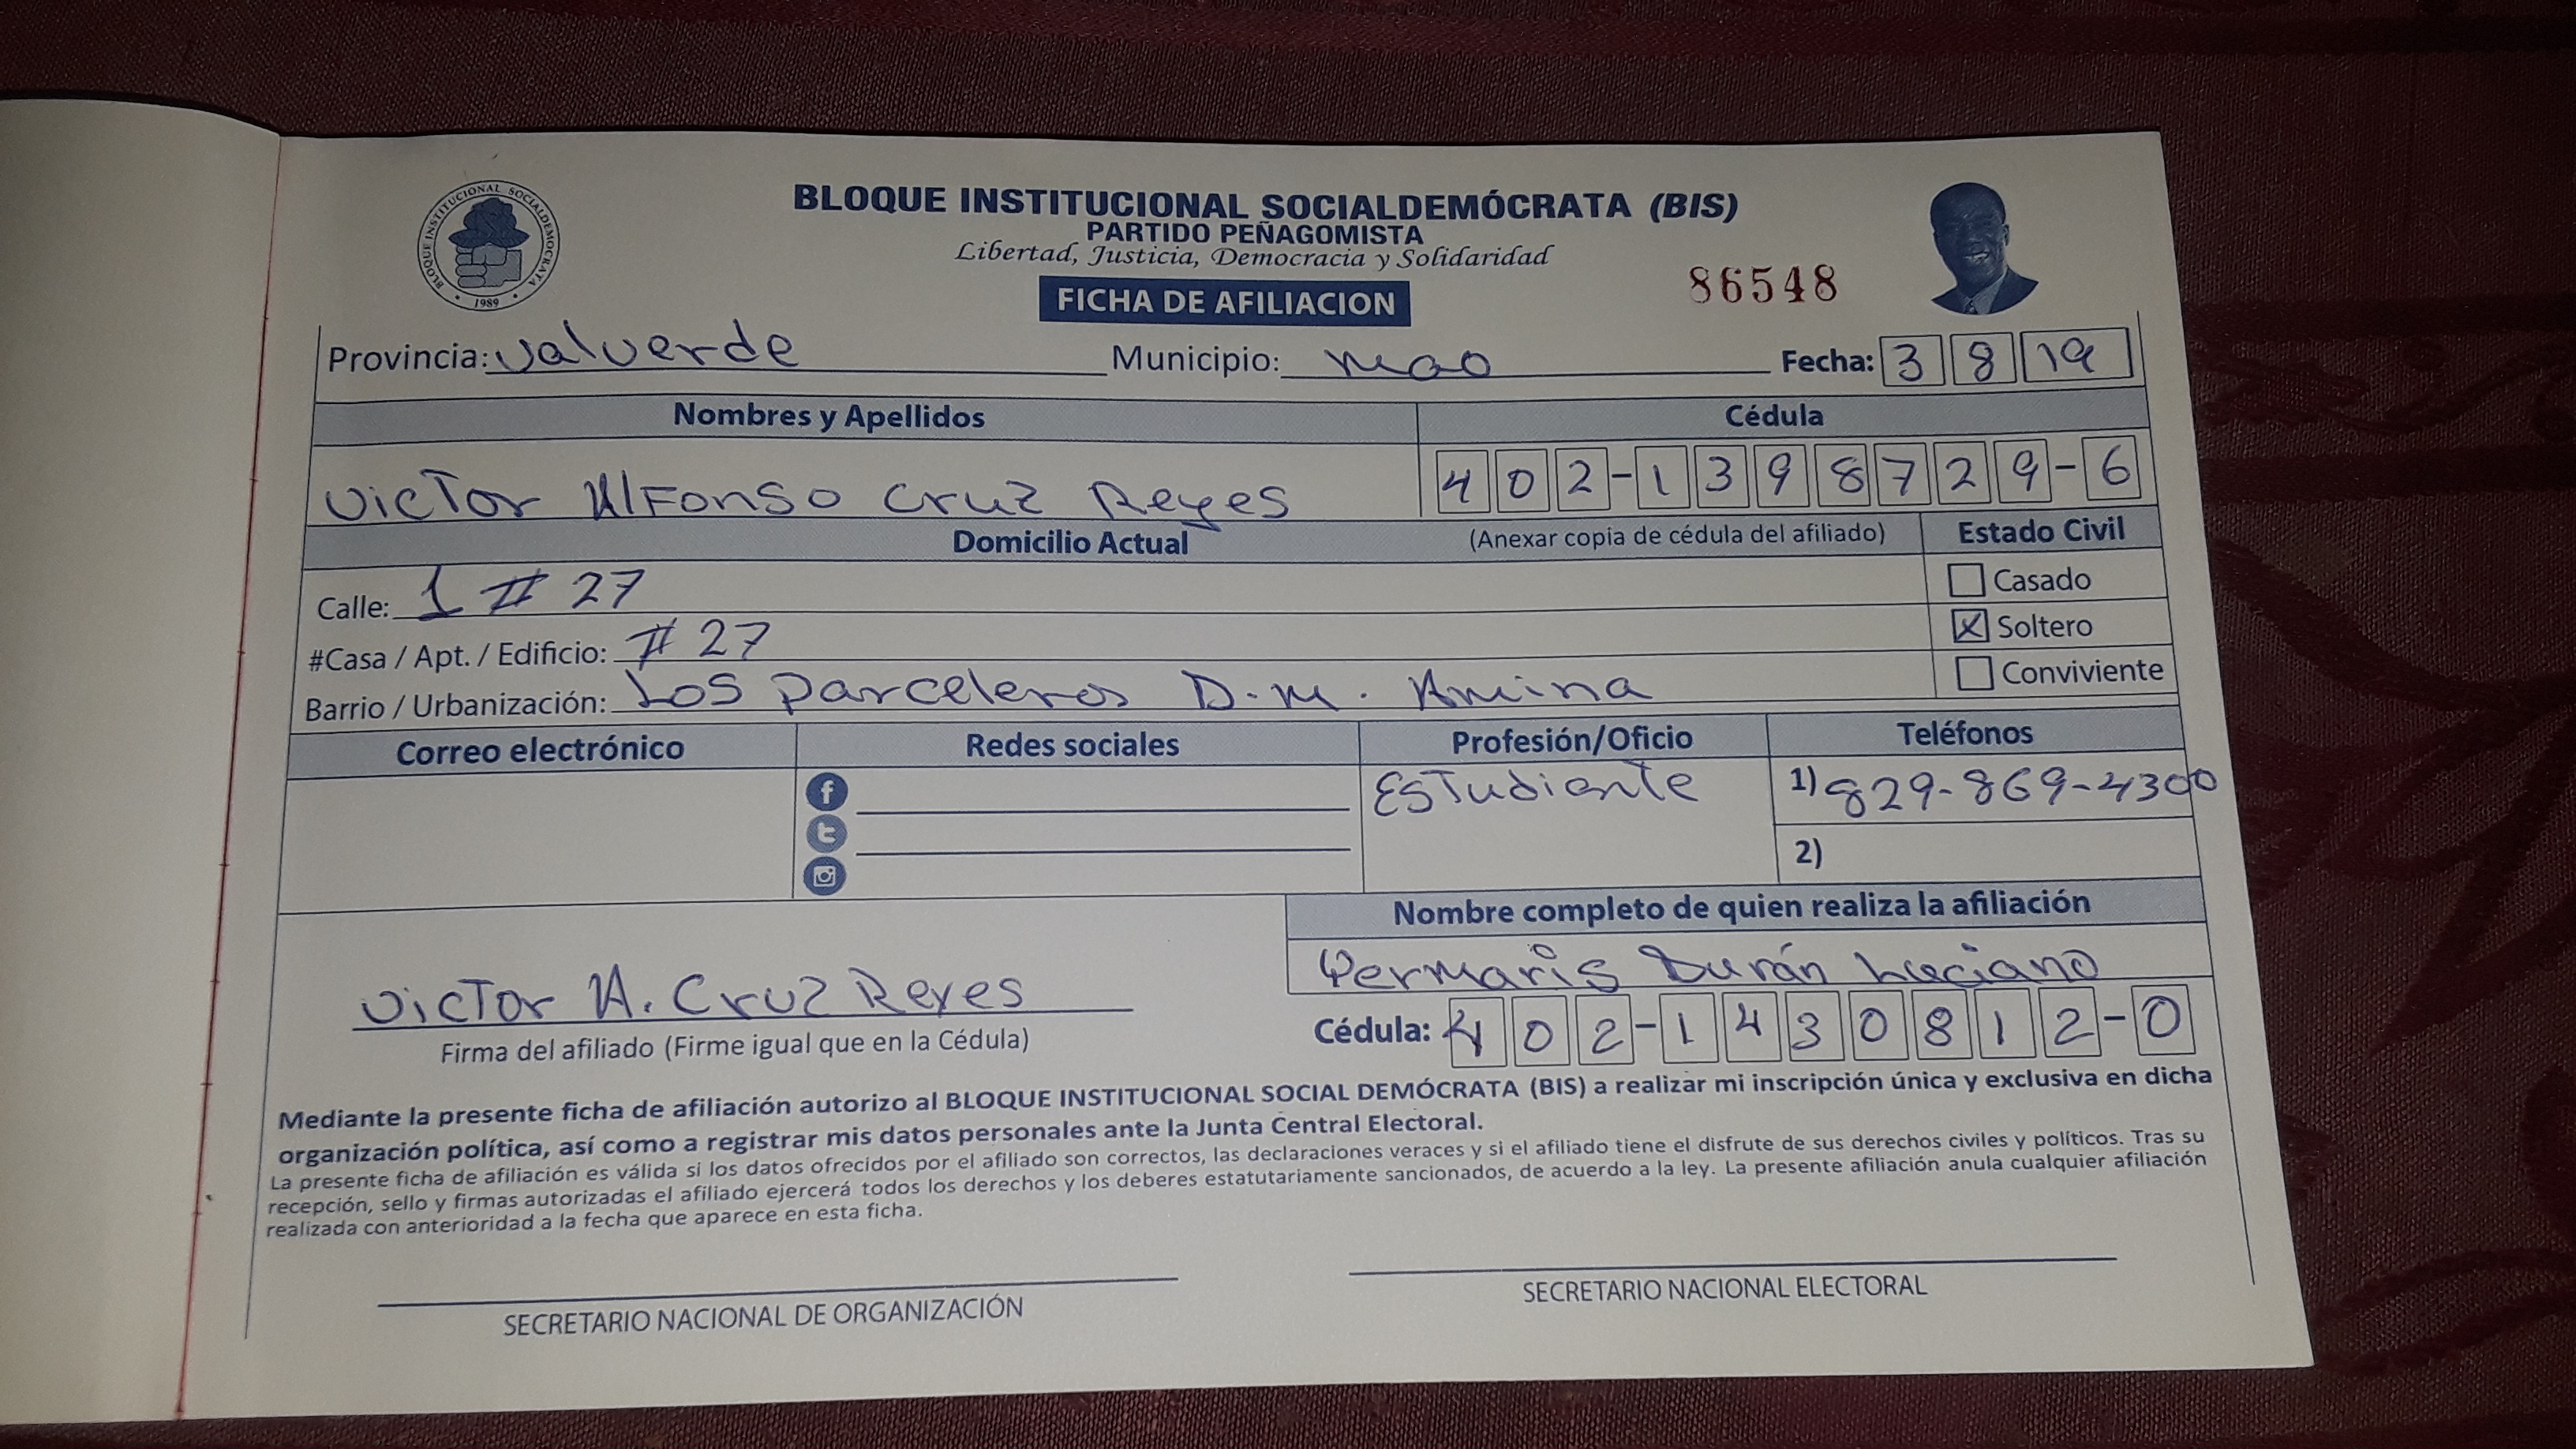 BLOQUE INSTITUCIONAL SOCIALDEMOCRATA
1989
BLOQUE INSTITUCIONAL SOCIALDEMÓCRATA (BIS)
PARTIDO PEÑAGOMISTA
Libertad, Justicia, Democracia y Solidaridad
FICHA DE AFILIACION
86548
Provincia: Valverde Municipio: Mao Fecha: 3 8 19
Nombres y Apellidos Cédula
Victor Alfonso Cruz Reyes 402-1398729-6
Domicilio Actual (Anexar copia de cédula del afiliado) Estado Civil
Calle: 1 # 27 Casado
#Casa / Apt. / Edificio: # 27 X Soltero
Barrio / Urbanización: Los Parceleros D.M. Amina Conviviente
Correo electrónico Redes sociales Profesión/Oficio Teléfonos
Estudiante 1) 829-869-4300
2)
Nombre completo de quien realiza la afiliación
Yermaris Durán Luciano
Victor A. Cruz Reyes
Cédula: 402-1430812-0
Firma del afiliado (Firme igual que en la Cédula)
Mediante la presente ficha de afiliación autorizo al BLOQUE INSTITUCIONAL SOCIAL DEMÓCRATA (BIS) a realizar mi inscripción única y exclusiva en dicha
organización política, así como a registrar mis datos personales ante la Junta Central Electoral.
La presente ficha de afiliación es válida si los datos ofrecidos por el afiliado son correctos, las declaraciones veraces y si el afiliado tiene el disfrute de sus derechos civiles y políticos. Tras su
recepción, sello y firmas autorizadas el afiliado ejercerá todos los derechos y los deberes estatutariamente sancionados, de acuerdo a la ley. La presente afiliación anula cualquier afiliación
realizada con anterioridad a la fecha que aparece en esta ficha.
SECRETARIO NACIONAL DE ORGANIZACIÓN SECRETARIO NACIONAL ELECTORAL